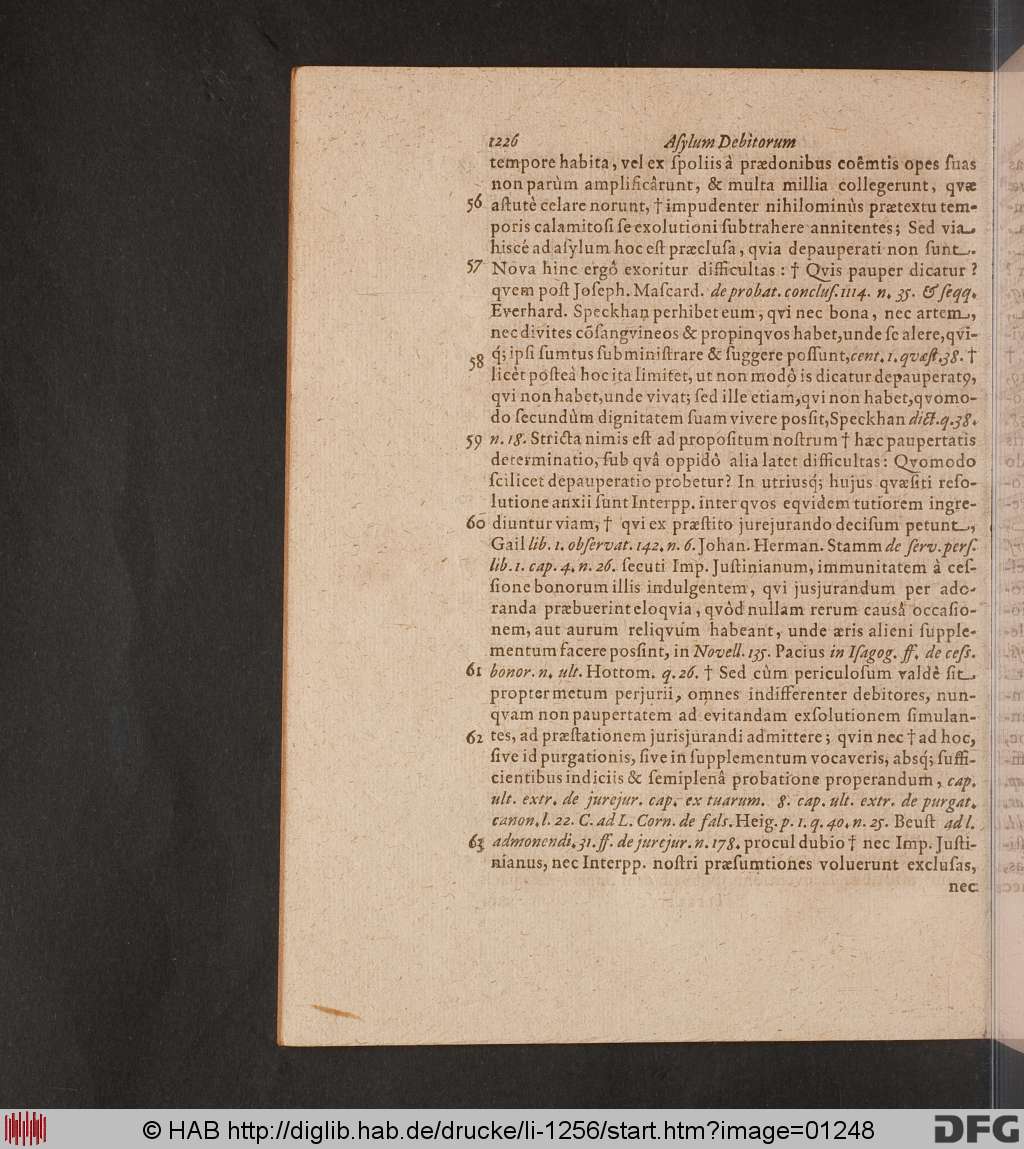 1226 Aſylum Debitorum
tempore habita, vel ex ſpoliis à prædonibus coêmtis opes ſuas
non parùm amplificârunt, & multa millia collegerunt, qvæ
56 aſtutè celare norunt, † impudenter nihilominùs prætextu tem-
poris calamitoſi ſe exolutioni ſubtrahere annitentes; Sed via
hiscé ad aſylum hoc eſt præcluſa, qvia depauperati non ſunt.
57 Nova hinc ergô exoritur difficultas: † Qvis pauper dicatur?
qvem poſt Joſeph. Maſcard. de probat. concluſ. 1114. n. 35. & ſeqq.
Everhard. Speckhan perhibet eum, qvi nec bona, nec artem,
nec divites cõſangvineos & propinqvos habet, unde ſe alere, qvi-
58 q́; ipſi ſumtus ſubminiſtrare & ſuggere poſſunt, cent. 1. qvæſt. 38. †
licèt poſteà hoc ita limitet, ut non modô is dicatur depauperatꝰ,
qvi non habet, unde vivat; ſed ille etiam, qvi non habet, qvomo-
do ſecundùm dignitatem ſuam vivere poſſit, Speckhan dict. q. 38.
59 n. 18. Stricta nimis eſt ad propoſitum noſtrum † hæc paupertatis
determinatio, ſub qvâ oppidô alia latet difficultas: Qvomodo
ſcilicet depauperatio probetur? In utriusq́; hujus qvæſiti reſo-
lutione anxii ſunt Interpp. inter qvos eqvidem tutiorem ingre-
60 diuntur viam, † qvi ex præſtito jurejurando deciſum petunt,
Gail lib. 1. obſervat. 142. n. 6. Johan. Herman. Stamm de ſerv. perſ.
lib. 1. cap. 4. n. 26. ſecuti Imp. Juſtinianum, immunitatem à ceſ-
ſione bonorum illis indulgentem, qvi jusjurandum per ado-
randa præbuerint eloqvia, qvòd nullam rerum causâ occaſio-
nem, aut aurum reliqvum habeant, unde æris alieni ſupple-
mentum facere poſſint, in Novell. 135. Pacius in Iſagog. ff. de ceſſ.
61 bonor. n. ult. Hottom. q. 26. † Sed cùm periculoſum valdè ſit
propter metum perjurii, omnes indifferenter debitores, nun-
qvam non paupertatem ad evitandam exſolutionem ſimulan-
62 tes, ad præſtationem jurisjurandi admittere; qvin nec † ad hoc,
ſive id purgationis, ſive in ſupplementum vocaveris, absq́; ſuffi-
cientibus indiciis & ſemiplenâ probatione properandum, cap.
ult. extr. de jurejur. cap. ex tuarum. 8. cap. ult. extr. de purgat.
canon. l. 22. C. ad L. Corn. de fals. Heig. p. 1. q. 40. n. 25. Beuſt ad l.
63 admonendi. 31. ff. de jurejur. n. 178. procul dubio † nec Imp. Juſti-
nianus, nec Interpp. noſtri præſumtiones voluerunt excluſas,
nec
© HAB http://diglib.hab.de/drucke/li-1256/start.htm?image=01248
DFG